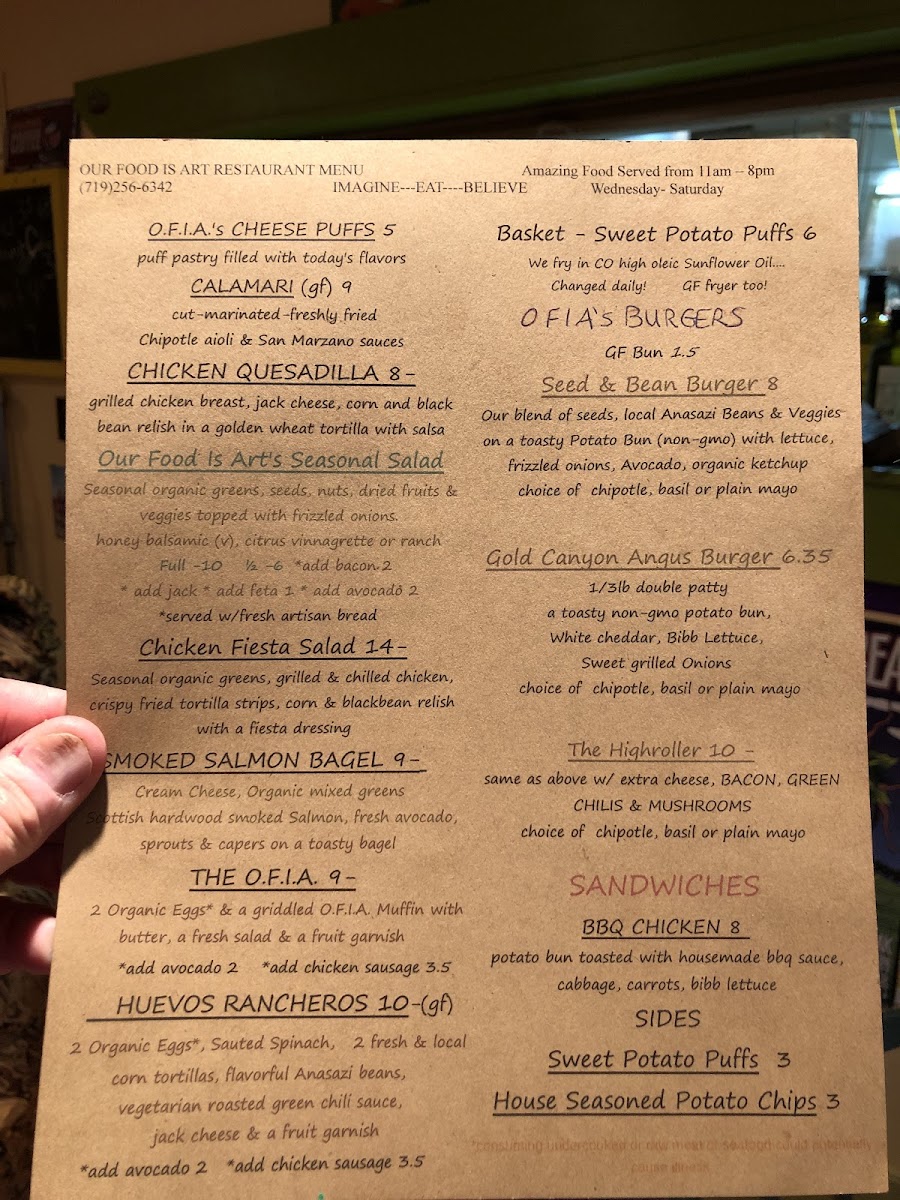 OUR FOOD IS ART RESTAURANT MENU
(719)256-6342
IMAGINE---EAT----BELIEVE
Amazing Food Served from 11am – 8pm
Wednesday- Saturday
O.F.I.A.'s CHEESE PUFFS 5
puff pastry filled with today's flavors
CALAMARI (gf) 9
cut-marinated-freshly fried
Chipotle aioli & San Marzano sauces
CHICKEN QUESADILLA 8-
grilled chicken breast, jack cheese, corn and black
bean relish in a golden wheat tortilla with salsa
Our Food Is Art's Seasonal Salad
Seasonal organic greens, seeds, nuts, dried fruits &
veggies topped with frizzled onions.
honey balsamic (v), citrus vinnagrette or ranch
Full -10 ½ -6 *add bacon 2
* add jack * add feta 1 * add avocado 2
*served w/fresh artisan bread
Chicken Fiesta Salad 14-
Seasonal organic greens, grilled & chilled chicken,
crispy fried tortilla strips, corn & blackbean relish
with a fiesta dressing
SMOKED SALMON BAGEL 9-
Cream Cheese, Organic mixed greens
Scottish hardwood smoked Salmon, fresh avocado,
sprouts & capers on a toasty bagel
THE O.F.I.A. 9-
2 Organic Eggs* & a griddled O.F.I.A. Muffin with
butter, a fresh salad & a fruit garnish
*add avocado 2 *add chicken sausage 3.5
HUEVOS RANCHEROS 10-(gf)
2 Organic Eggs*, Sauted Spinach, 2 fresh & local
corn tortillas, flavorful Anasazi beans,
vegetarian roasted green chili sauce,
jack cheese & a fruit garnish
*add avocado 2 *add chicken sausage 3.5
Basket - Sweet Potato Puffs 6
We fry in CO high oleic Sunflower Oil....
Changed daily! GF fryer too!
OFIA's BURGERS
GF Bun 1.5
Seed & Bean Burger 8
Our blend of seeds, local Anasazi Beans & Veggies
on a toasty Potato Bun (non-gmo) with lettuce,
frizzled onions, Avocado, organic ketchup
choice of chipotle, basil or plain mayo
Gold Canyon Angus Burger 6.35
1/3lb double patty
a toasty non-gmo potato bun,
White cheddar, Bibb Lettuce,
Sweet grilled Onions
choice of chipotle, basil or plain mayo
The Highroller 10 -
same as above w/ extra cheese, BACON, GREEN
CHILIS & MUSHROOMS
choice of chipotle, basil or plain mayo
SANDWICHES
BBQ CHICKEN 8
potato bun toasted with housemade bbq sauce,
cabbage, carrots, bibb lettuce
SIDES
Sweet Potato Puffs 3
House Seasoned Potato Chips 3
*consuming undercooked or raw meat or seafood could potentially
cause illness